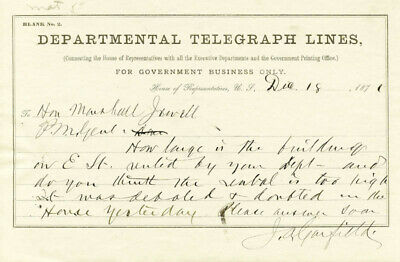 BLANK No. 2.
DEPARTMENTAL TELEGRAPH LINES,
(Connecting the House of Representatives with all the Executive Departments and the Government Printing Office.)
FOR GOVERNMENT BUSINESS ONLY.
House of Representatives, U. S., Dec 18, 187
To Hon Marshall Jewell
P M Genl
How large is the building
on E St. rented by your Dept - and
do you think the rental is too high
It was debated & doubted in the
House yesterday Please answer soon
J. A. Garfield